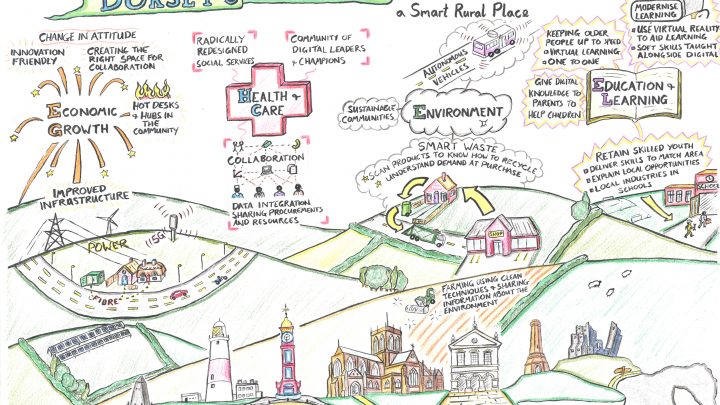 DORSET'S
a Smart Rural Place
MODERNISE
LEARNING
CHANGE IN ATTITUDE
INNOVATION
FRIENDLY
CREATING THE
RIGHT SPACE FOR
COLLABORATION
HOT DESKS
& HUBS IN
THE
COMMUNITY
ECONOMIC
GROWTH
IMPROVED
INFRASTRUCTURE
POWER
5G
FIBRE
RADICALLY
REDESIGNED
SOCIAL SERVICES
COMMUNITY OF
DIGITAL LEADERS
& CHAMPIONS
HEALTH &
CARE
COLLABORATION
DATA INTEGRATION
SHARING PROCUREMENTS
AND RESOURCES
AUTONOMOUS
VEHICLES
SUSTAINABLE
COMMUNITIES
ENVIRONMENT
SMART WASTE
SCAN PRODUCTS TO KNOW HOW TO RECYCLE
UNDERSTAND DEMAND AT PURCHASE
SHOP
FARMING USING CLEAN
TECHNIQUES & SHARING
INFORMATION ABOUT THE
ENVIRONMENT
KEEPING OLDER
PEOPLE UP TO SPEED
VIRTUAL LEARNING
ONE TO ONE
USE VIRTUAL REALITY
TO AID LEARNING
SOFT SKILLS TAUGHT
ALONGSIDE DIGITAL
GIVE DIGITAL
KNOWLEDGE TO
PARENTS TO
HELP CHILDREN
EDUCATION &
LEARNING
RETAIN SKILLED YOUTH
DELIVER SKILLS TO MATCH AREA
EXPLAIN LOCAL OPPORTUNITIES
LOCAL INDUSTRIES IN
SCHOOLS
SCHOOL